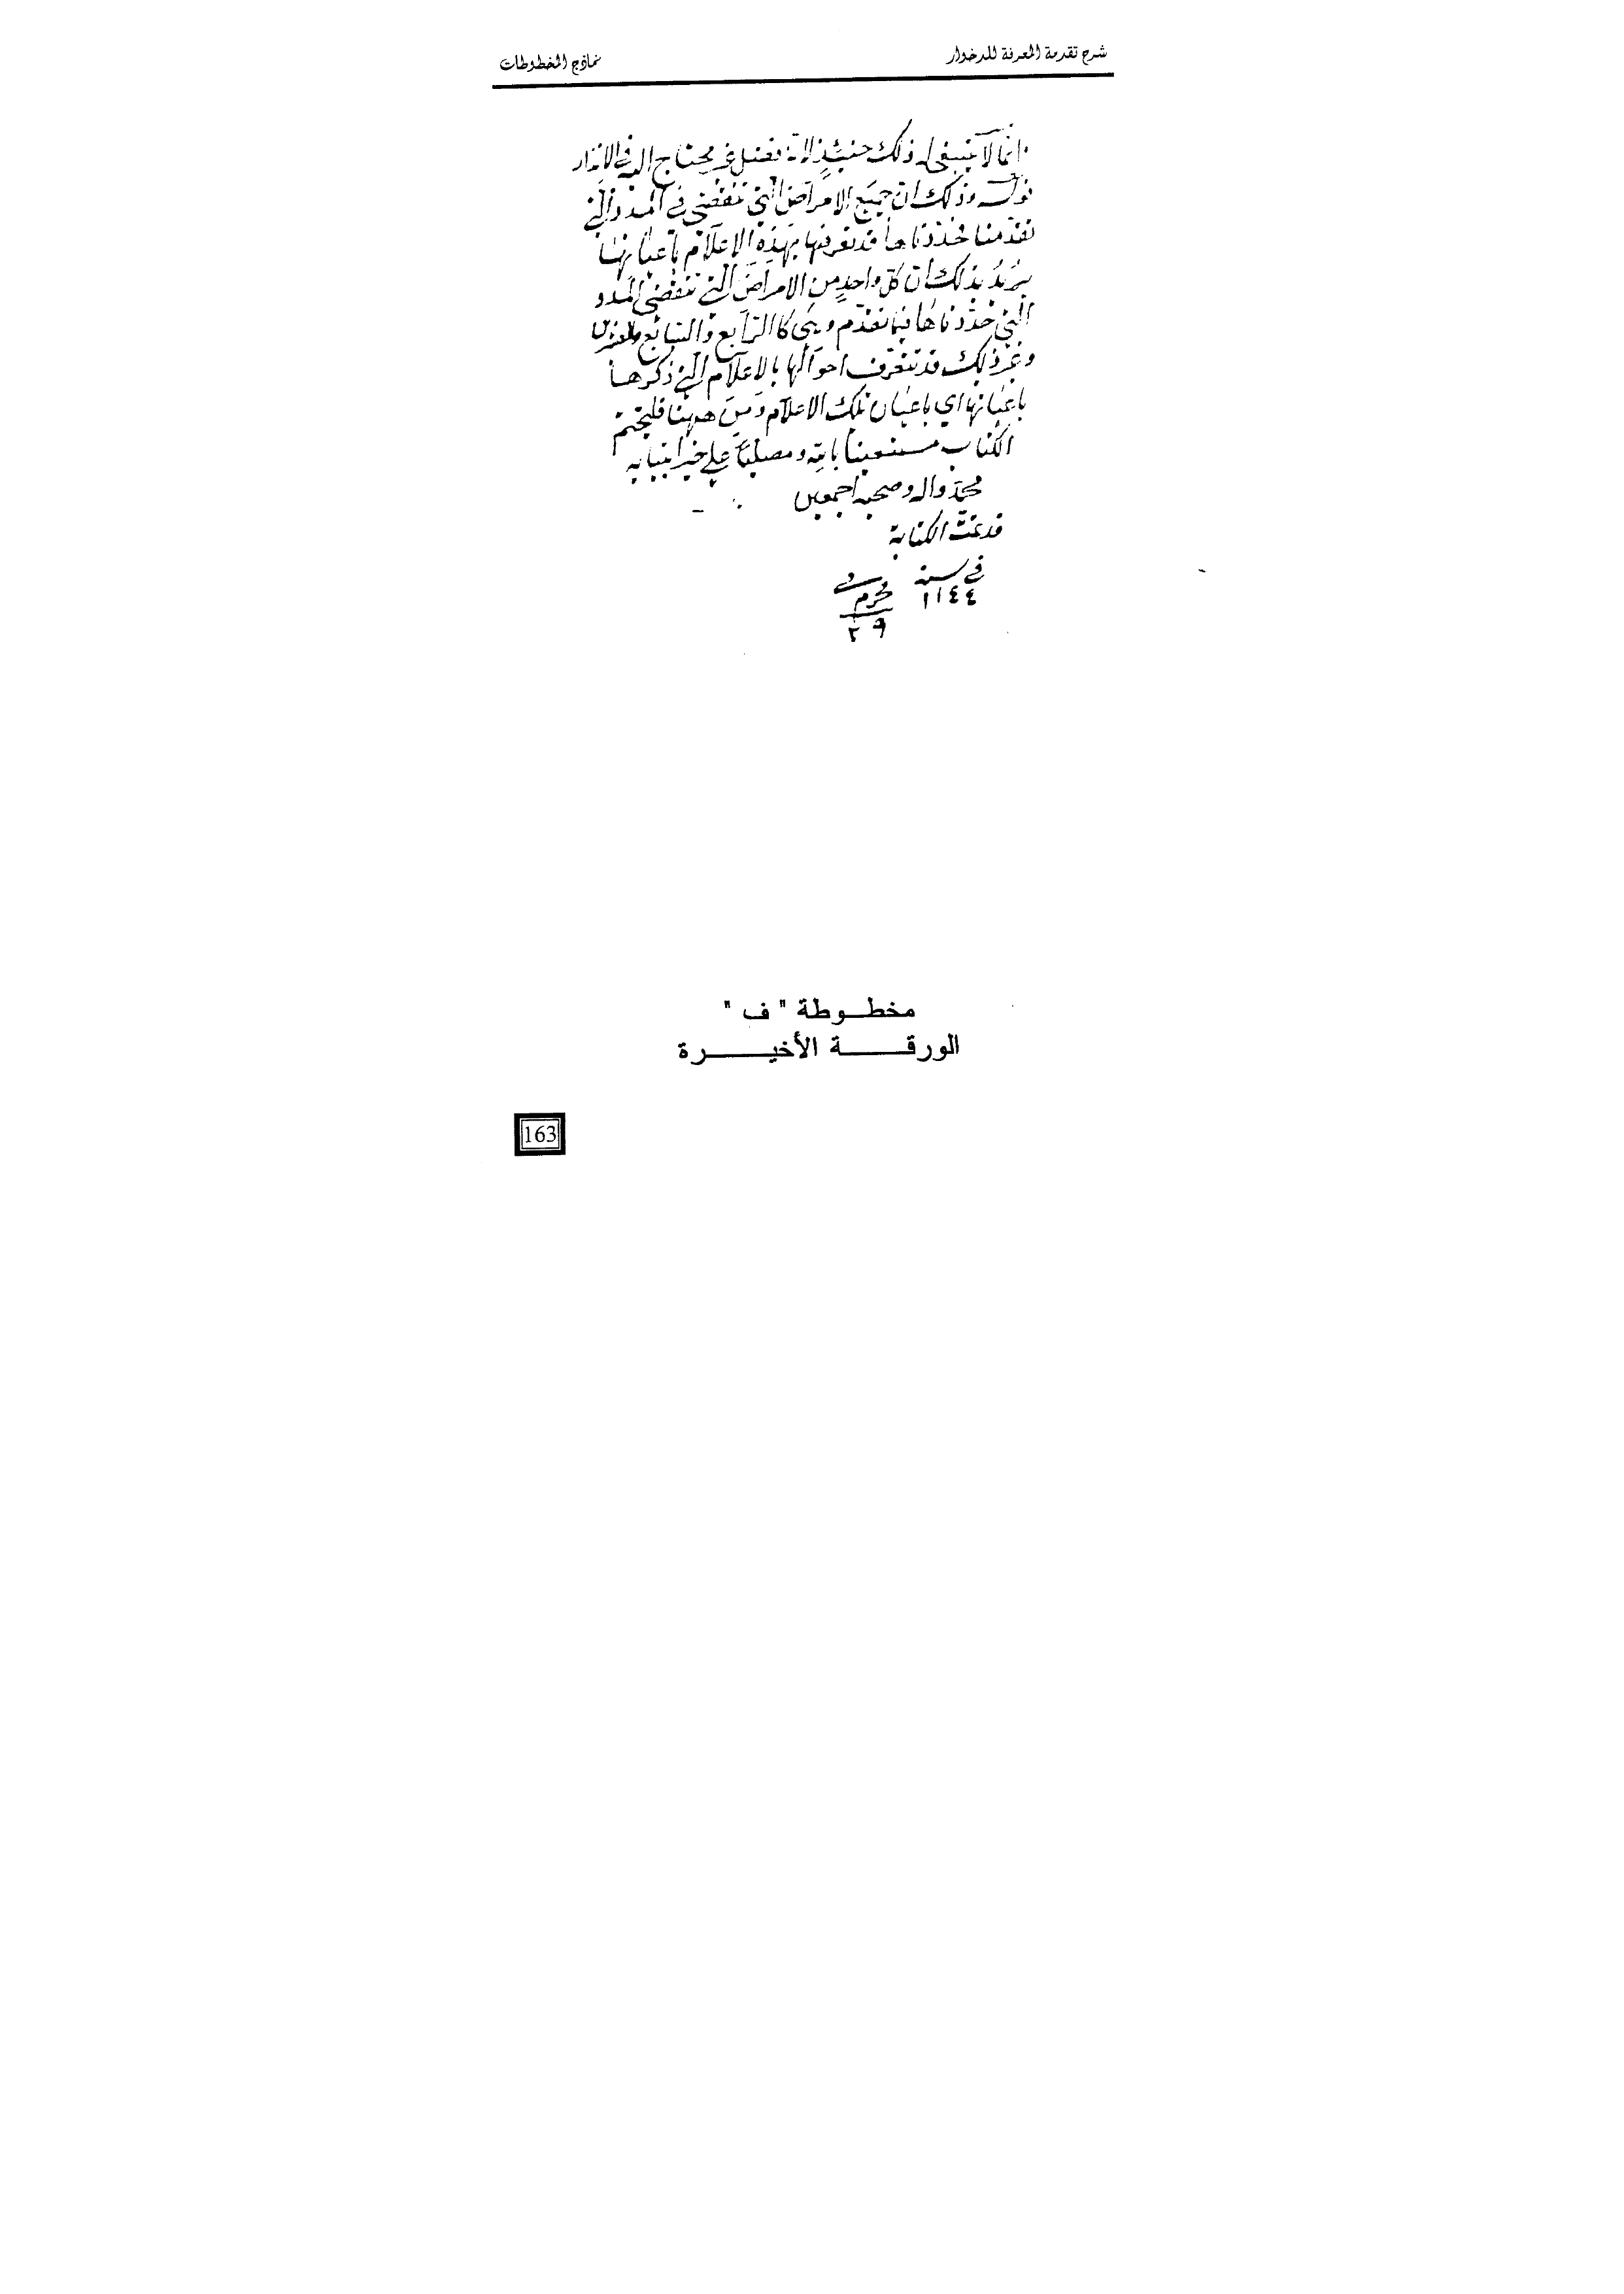 شرح تقدمة المعرفة للدخوار
نماذج المخطوطات
انما لا ينبغي له ذلك حينئذ لانه فضل غير محتاج اليه في الانذار
قوله وذلك ان جميع الامراض التي تنقضي في المدد التي
تقدمنا فحددناها قد تعرفها بهذه الاعلام باعيانها
يريد بذلك ان كل واحد من الامراض التي تنقضي المدد
التي حددناها فيما تقدم وهي كالرابع والسابع والعشرين
وغير ذلك قد تتعرف احوالها بالاعلام التي ذكرها
باعيانها اي باعيان تلك الاعلام ومن ههنا فليختم
الكتاب مستعينا بالله ومصليا على خير انبيائه
محمد واله وصحبه اجمعين
قد تمت الكتابة
في سنة ١١٤٤
في محرم ٢٩
مخطـوطة " ف "
الورقـــة الأخيـــرة
163